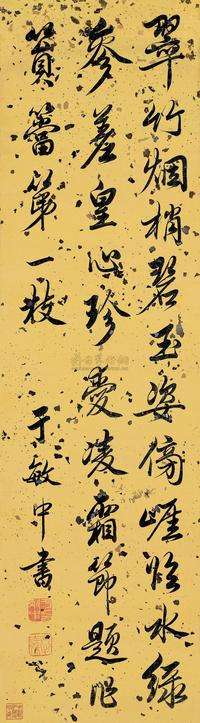 翠竹烟梢碧玉姿傍崕临水绿
参差皇心珍爱凌霜节题作
篔簹第一枝
于敏中书